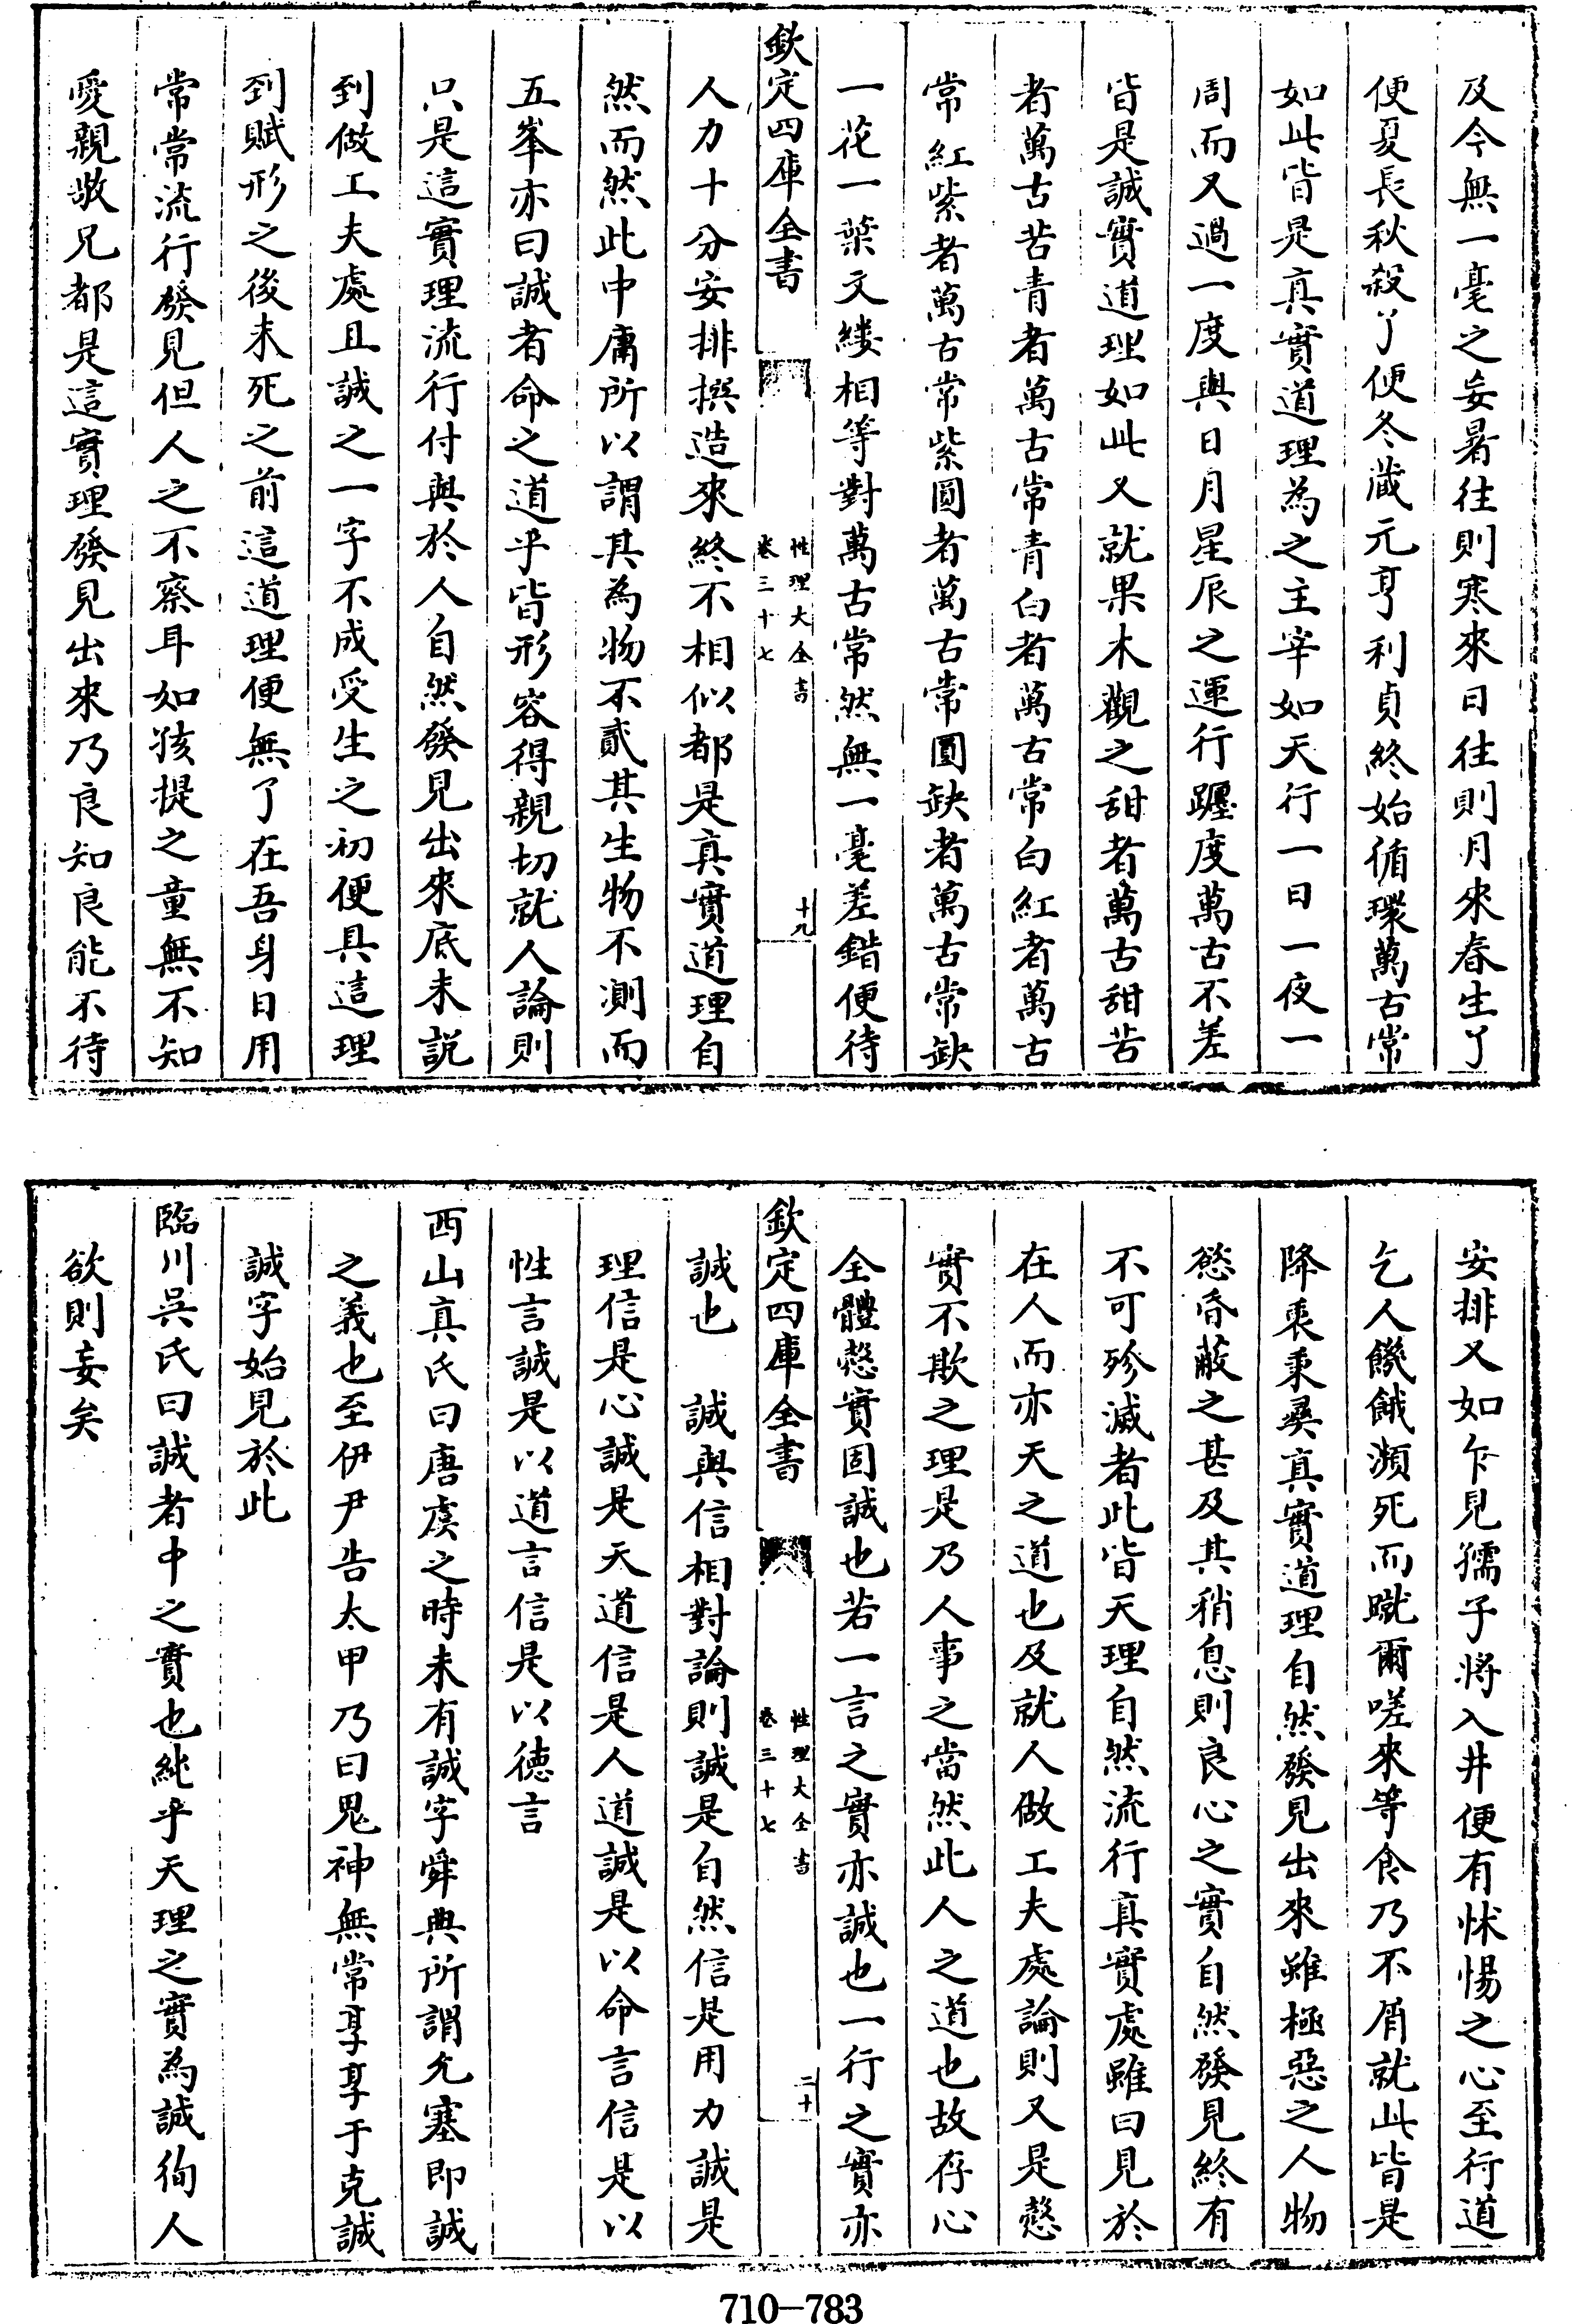 及今無一毫之妄暑往則寒來日往則月來春生了
便夏長秋殺了便冬藏元亨利貞終始循環萬古常
如此皆是真實道理為之主宰如天行一日一夜一
周而又過一度與日月星辰之運行躔度萬古不差
皆是誠實道理如此又就果木觀之甜者萬古甜苦
者萬古苦青者萬古常青白者萬古常白紅者萬古
常紅紫者萬古常紫圓者萬古常圓缺者萬古常缺
一花一葉文縷相等對萬古常然無一毫差錯便待
欽定四庫全書
性理大全書
卷三十七
十九
人力十分安排撰造來終不相似都是真實道理自
然而然此中庸所以謂其為物不貳其生物不測而
五峯亦曰誠者命之道乎皆形容得親切就人論則
只是這實理流行付與於人自然發見出來底未說
到做工夫處且誠之一字不成受生之初便具這理
到賦形之後未死之前這道理便無了在吾身日用
常常流行發見但人之不察耳如孩提之童無不知
愛親敬兄都是這實理發見出來乃良知良能不待
安排又如乍見孺子將入井便有怵惕之心至行道
乞人饑餓瀕死而蹴爾嗟來等食乃不屑就此皆是
降衷秉彛真實道理自然發見出來雖極惡之人物
慾昏蔽之甚及其稍息則良心之實自然發見終有
不可殄滅者此皆天理自然流行真實處雖曰見於
在人而亦天之道也及就人做工夫處論則又是慤
實不欺之理是乃人事之當然此人之道也故存心
全體慤實固誠也若一言之實亦誠也一行之實亦
欽定四庫全書
性理大全書
卷三十七
二十
誠也　誠與信相對論則誠是自然信是用力誠是
理信是心誠是天道信是人道誠是以命言信是以
性言誠是以道言信是以德言
西山真氏曰唐虞之時未有誠字舜典所謂允塞即誠
之義也至伊尹告太甲乃曰鬼神無常享享于克誠
誠字始見於此
臨川吳氏曰誠者中之實也純乎天理之實為誠徇人
欲則妄矣
710—783